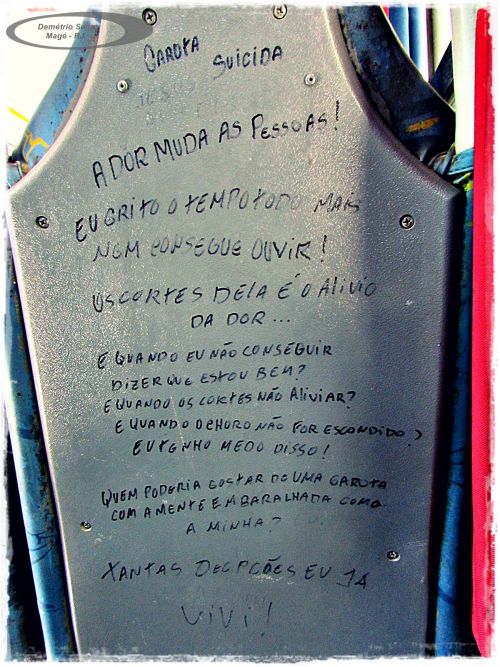 Demétrio Sena
Magé - RJ
GAROTA SUICIDA
A DOR MUDA AS PESSOAS!
EU GRITO O TEMPO TODO MAIS
NGM CONSEGUE OUVIR!
OS CORTES DELA É O ALIVIO
DA DOR...
E QUANDO EU NÃO CONSEGUIR
DIZER QUE ESTOU BEM?
E QUANDO OS CORTES NÃO ALIVIAR?
E QUANDO O CHORO NÃO FOR ESCONDIDO?
EU TENHO MEDO DISSO!
QUEM PODERIA GOSTAR DE UMA GAROTA
COM A MENTE EMBARALHADA COMO
A MINHA?
TANTAS DECPÇÕES EU JA
VIVI!